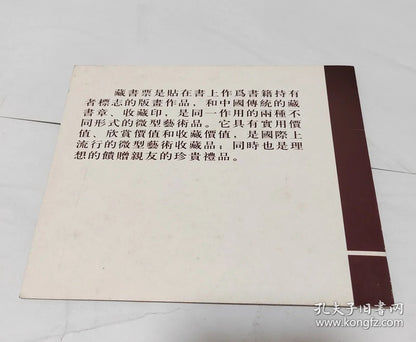 藏書票是貼在書上作爲書籍持有
者標志的版畫作品，和中國傳統的藏
書章、收藏印，是同一作用的兩種不
同形式的微型藝術品。它具有實用價
值、欣賞價值和收藏價值，是國際上
流行的微型藝術收藏品；同時也是理
想的饋贈親友的珍貴禮品。
孔夫子旧书网
www.kongfz.com